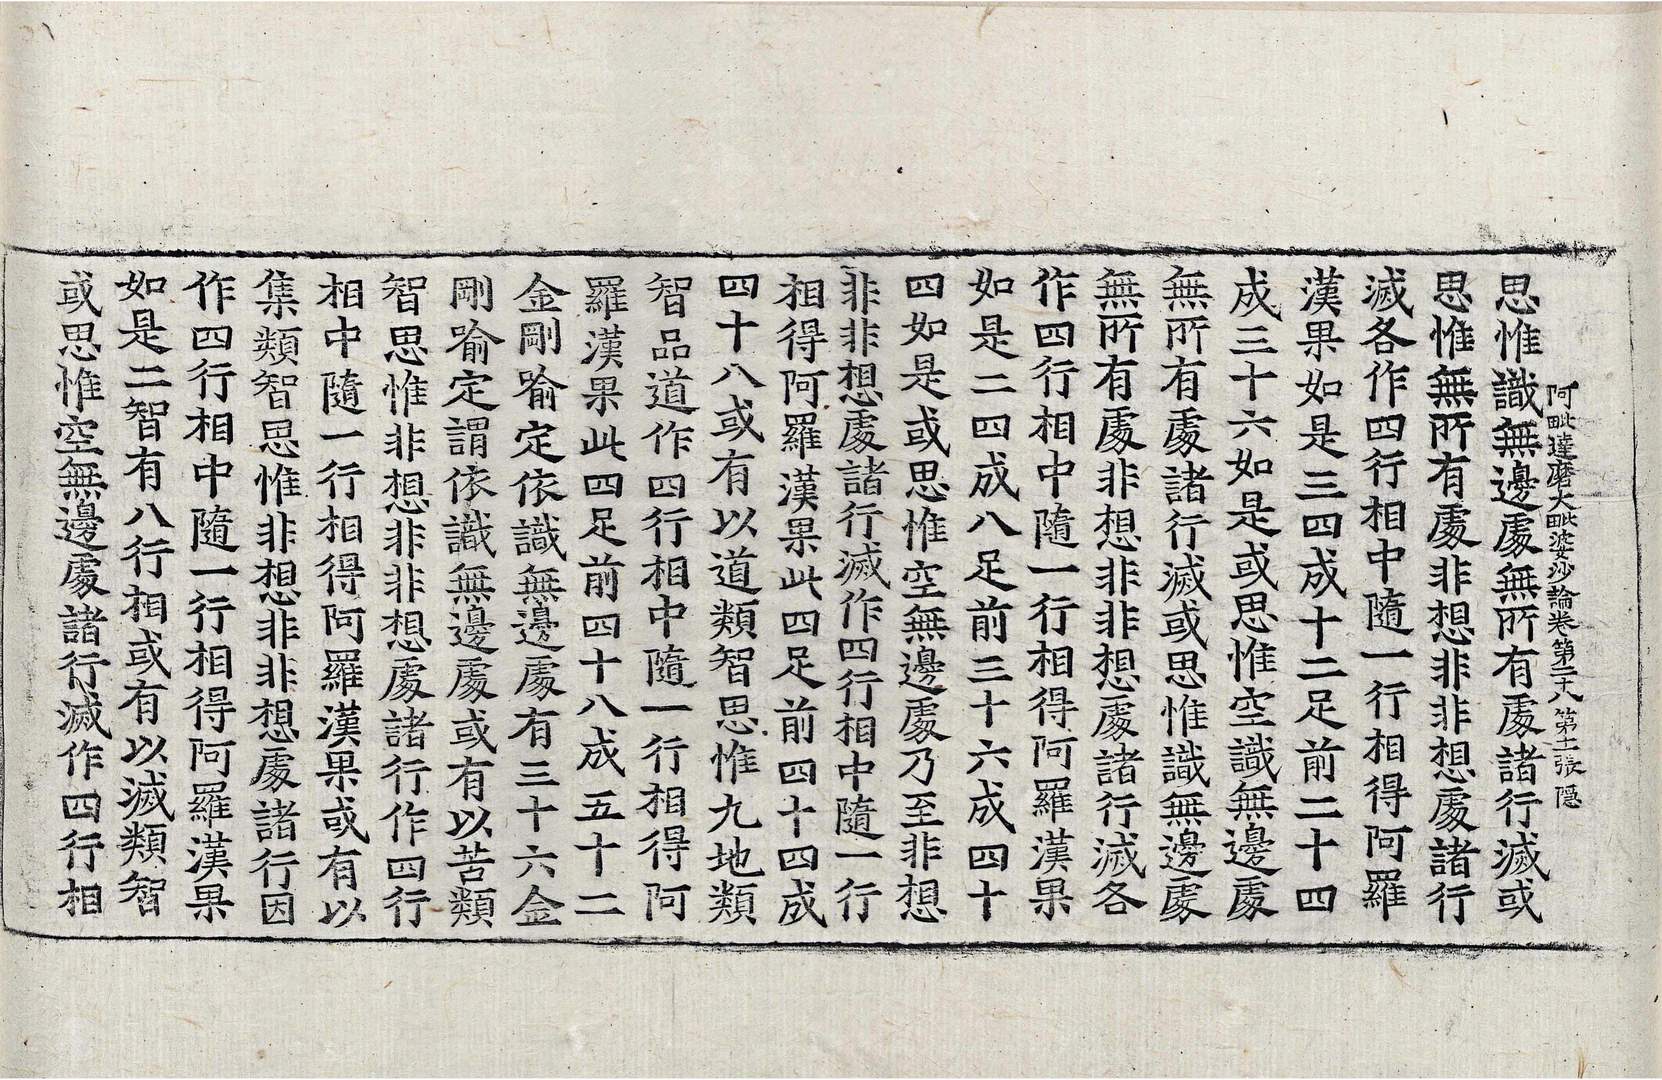 阿毗達磨大毗婆沙論卷第二十八 第十一張 隱
思惟識無邊處無所有處諸行滅或
思惟無所有處非想非非想處諸行
滅各作四行相中隨一行相得阿羅
漢果如是三四成十二足前二十四
成三十六如是或思惟空識無邊處
無所有處諸行滅或思惟識無邊處
無所有處非想非非想處諸行滅各
作四行相中隨一行相得阿羅漢果
如是二四成八足前三十六成四十
四如是或思惟空無邊處乃至非想
非非想處諸行滅作四行相中隨一行
相得阿羅漢果此四足前四十四成
四十八或有以道類智思惟九地類
智品道作四行相中隨一行相得阿
羅漢果此四足前四十八成五十二
金剛喻定依識無邊處有三十六金
剛喻定謂依識無邊處或有以苦類
智思惟非想非非想處諸行作四行
相中隨一行相得阿羅漢果或有以
集類智思惟非想非非想處諸行因
作四行相中隨一行相得阿羅漢果
如是二智有八行相或有以滅類智
或思惟空無邊處諸行滅作四行相